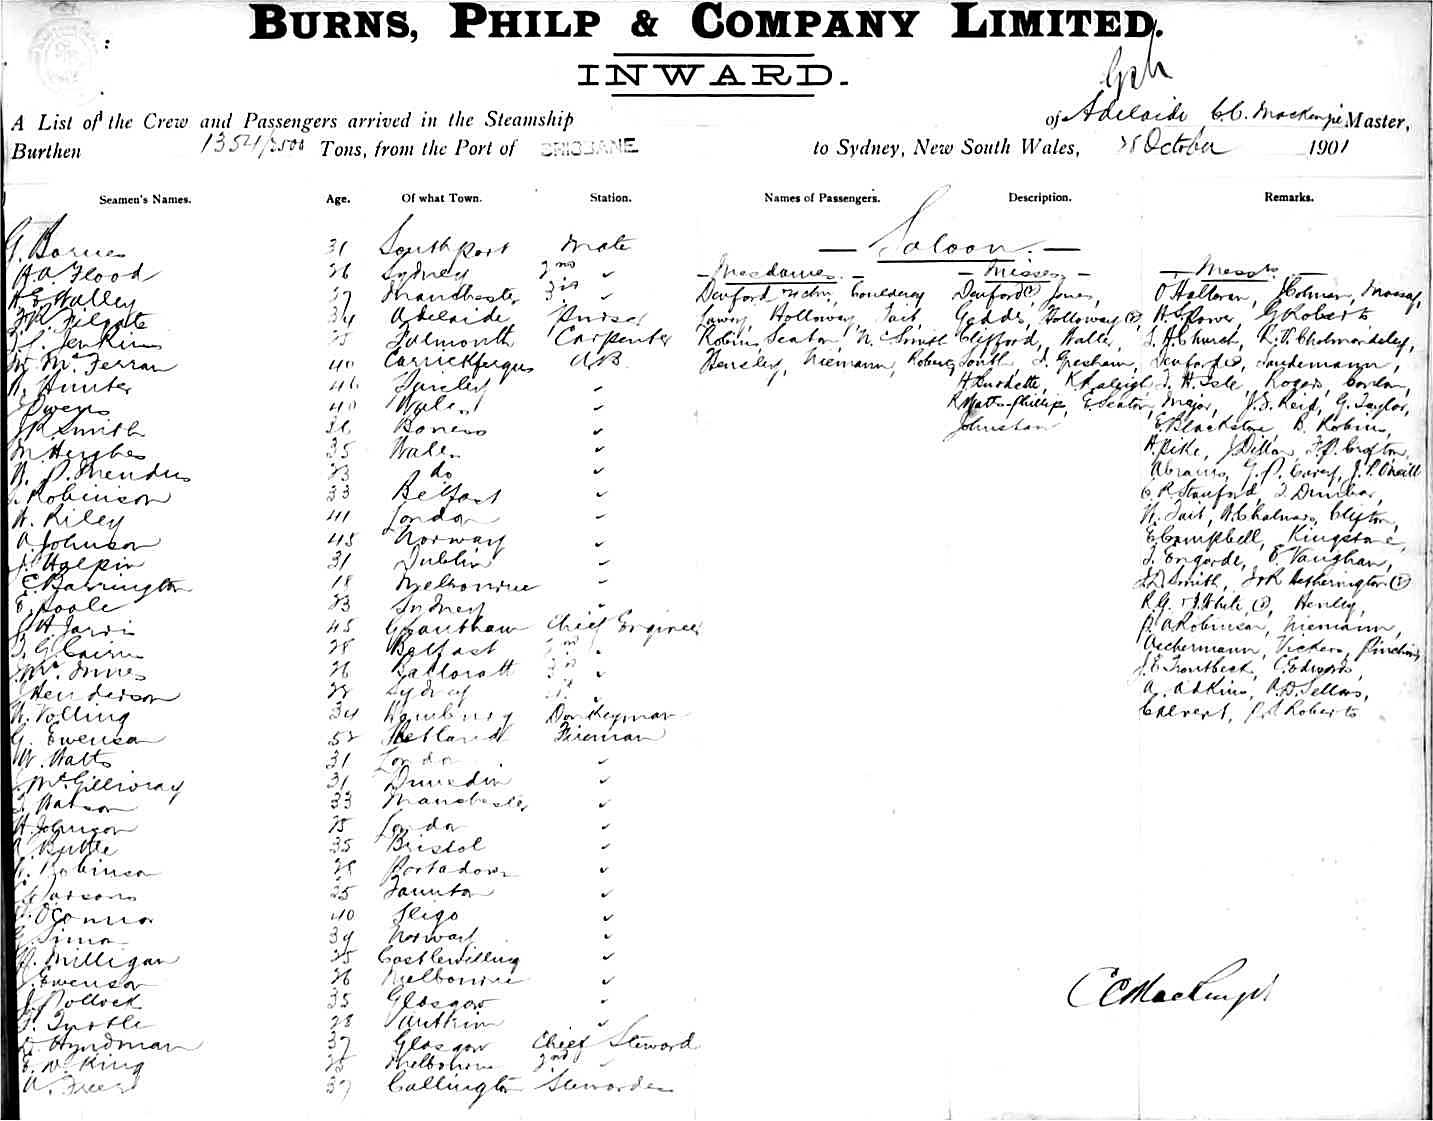 BURNS, PHILP & COMPANY LIMITED.
INWARD.
A List of the Crew and Passengers arrived in the Steamship
of Adelaide C.C. Mackenzie Master,
Burthen Tons, from the Port of BRISBANE to Sydney, New South Wales, 28 October 1901
Seamen's Names. Age. Of what Town. Station. Names of Passengers. Description. Remarks.
G. Barnes 31 Southport Mate
— Saloon —
H.A. Flood 26 Sydney 2nd "
— Mesdames — — Misses — — Messrs —
37 Manchester 3rd "
Denford Jones,
O'Halloran, J Colman, Massey,
34 Adelaide Purser
Lowry, Holloway, Tait, Geddes, Holloway (2), A Spower, G Roberts
Jenkins 25 Falmouth Carpenter
Robin, Seaton, N.C. Smith Clifford, Waller, J. H. Church, R. P. Cholmondeley,
McFerran 40 Carrickfergus A.B.
Hensley, Niemann, Roberts South, J. Gresham, Denford, Sandemann,
W. Hunter 46 "
H Burdette, K Raleigh J. H. Isle, Rogers,
Owens 40 Wales "
R Watts-Phillips, E. Seaton, Major, J. S. Reid, G. Taylor,
J.R. Smith 36 Boness "
Johnston
E Blackstone, B. Robins,
M. Hughes 35 Wales "
A. Pike, J Dillon, F. P. Crofton,
W. P. Mendus 23 do "
Abrams, G. P. Carey, J. P. O'Neill
J. Robinson 33 Belfast "
C. R. Stanford, J. Dunbar,
W. Riley 41 London "
N. Tait, A. Chalmers, Clifton,
A. Johnson 45 Norway "
E. Campbell, Kingstone,
J. Halpin 31 Dublin "
J. Engorde, E. Vaughan,
C. Barrington 18 Melbourne "
J.D. Smith, J & R Hetherington (2)
E. Poole 23 Sydney "
R.G. & J. White, (2), Henley,
45 Chief Engineer
A. A Robinson, Niemann,
J. G. Cairns 28 Belfast 2nd "
Aechermann, Vickers,
J. McInnes 26 Ballarat 3rd "
J. E. Troutbeck, C. Edwards,
J Henderson 28 Sydney 4th "
A. Adkins, A. D. Sellars,
W. Volling 34 Hamburg Donkeyman
Calvert, Roberts
G. Ewenson 52 Shetland Fireman
W. Watts 31 London "
J. McGillivray 31 Dunedin "
J. Watson 33 Manchester "
H. Johnson 25 London "
35 Bristol "
Robinson 28 Portadown "
Parsons 25 Taunton "
O'Connor 40 Sligo "
39 Norway "
Milligan 25 Castlewilling "
J. Ewenson 26 Melbourne "
J. Pollock 35 Glasgow "
F. Turtle 28 Antrim "
C C Mackenzie
Hyndman 37 Glasgow Chief Steward
E. W. King 25 Melbourne 2nd "
A. Freer 37 Callington Stewardess